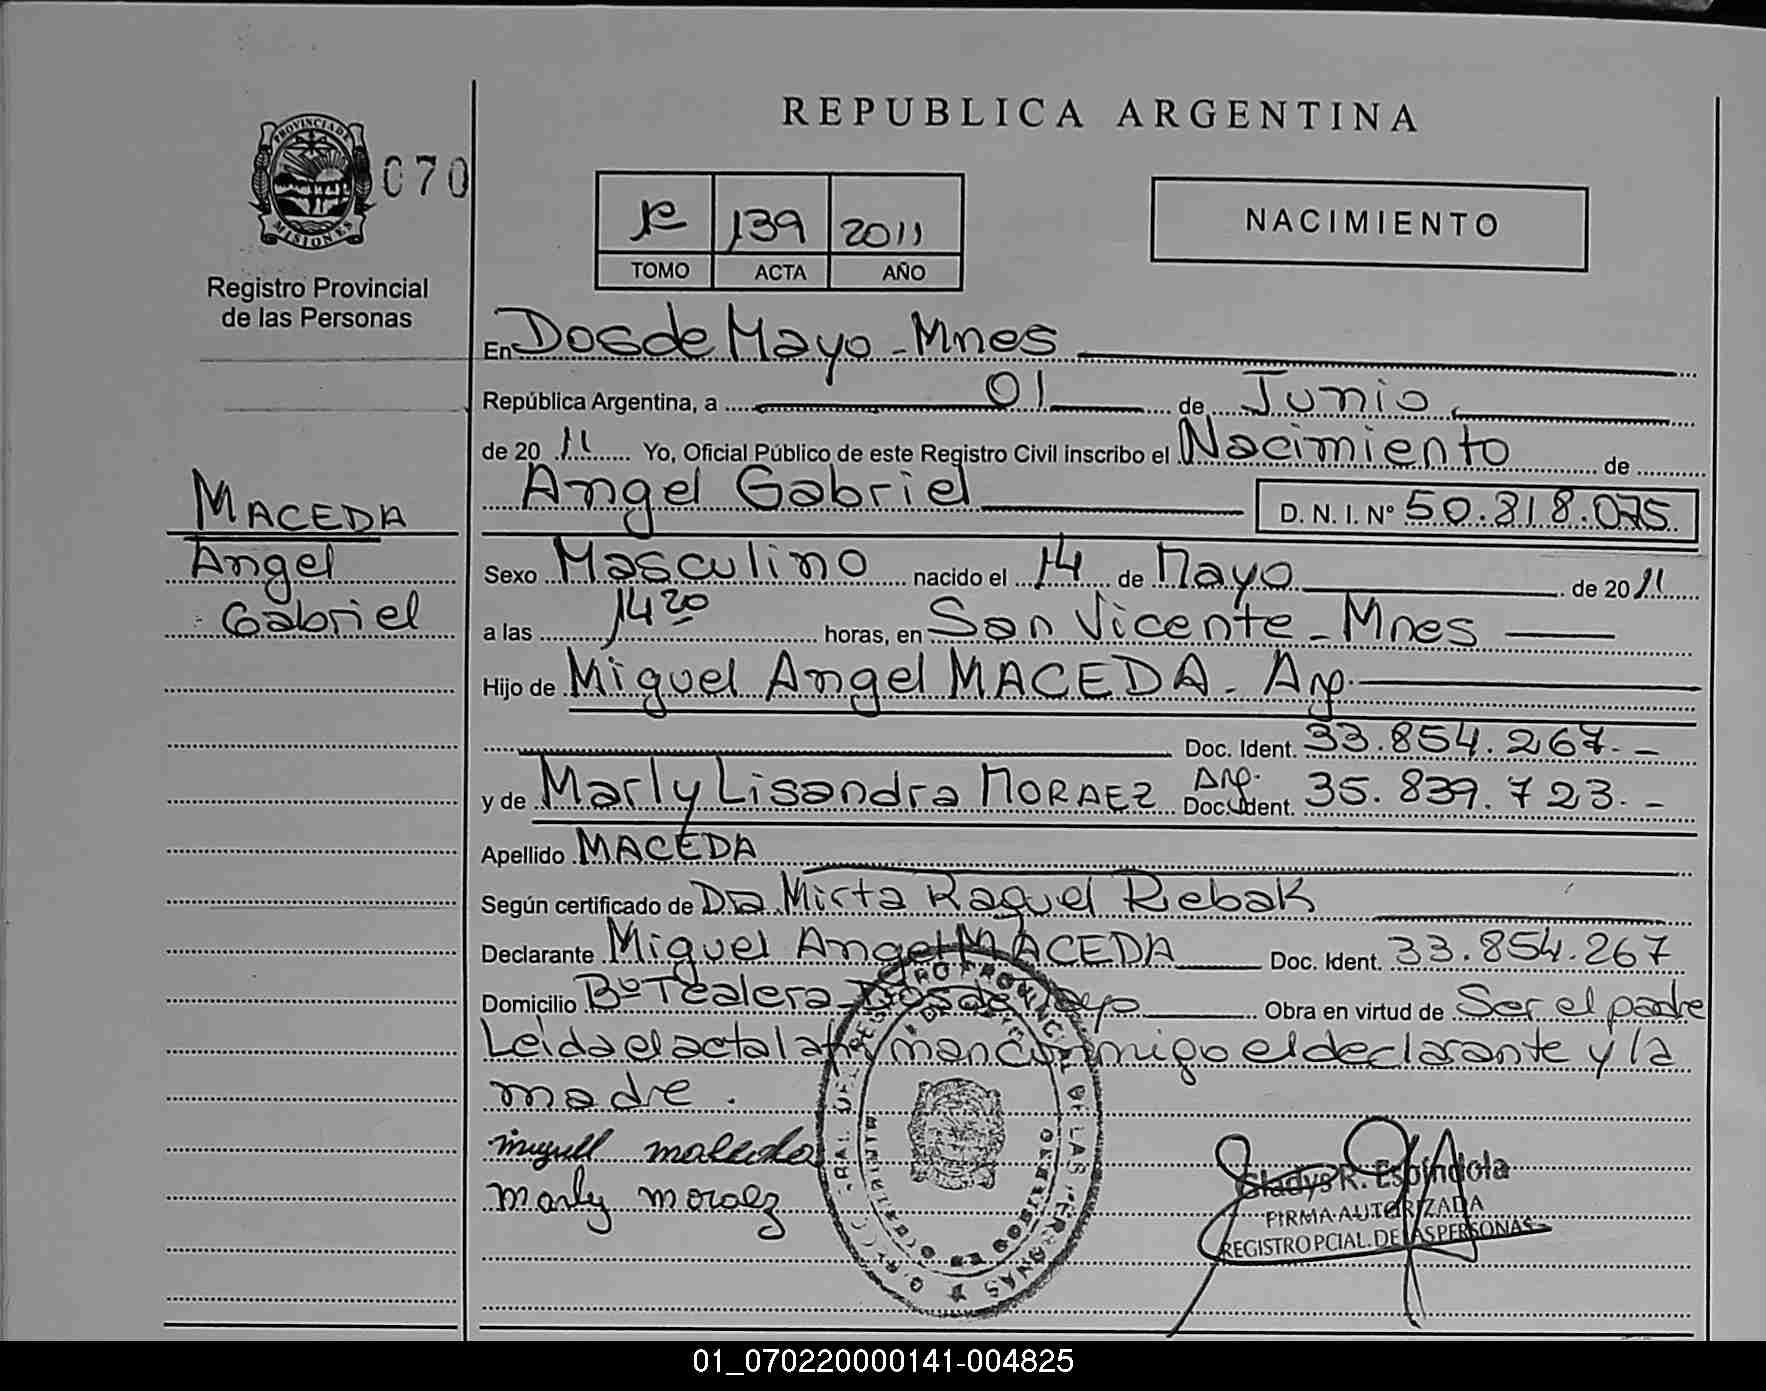 REPUBLICA ARGENTINA
PROVINCIA DE
MISIONES
070
Registro Provincial
de las Personas
1º 139 2011
TOMO ACTA AÑO
NACIMIENTO
MACEDA
Angel
Gabriel
En Dos de Mayo - Mnes
República Argentina, a 01 de Junio
de 20 11 Yo, Oficial Público de este Registro Civil inscribo el Nacimiento de
Angel Gabriel D. N. I. Nº 50.818.075
Sexo Masculino nacido el 14 de Mayo de 20 11
a las 14 20 horas, en San Vicente - Mnes
Hijo de Miguel Angel MACEDA - Arg.
Doc. Ident. 33.854.267.-
y de Marly Lisandra MORAEZ Arg. Doc. Ident. 35.839.723.-
Apellido MACEDA
Según certificado de Dra Mirta Raquel Rebak
Declarante Miguel Angel MACEDA Doc. Ident. 33.854.267
Domicilio Bº Tealera - Dos de Mayo Obra en virtud de Ser el padre
Leida el acta la firman conmigo el declarante y la
madre.
miguel maceda
marly moraez
Gladys R. Espíndola
FIRMA AUTORIZADA
REGISTRO PCIAL. DE LAS PERSONAS
01_070220000141-004825